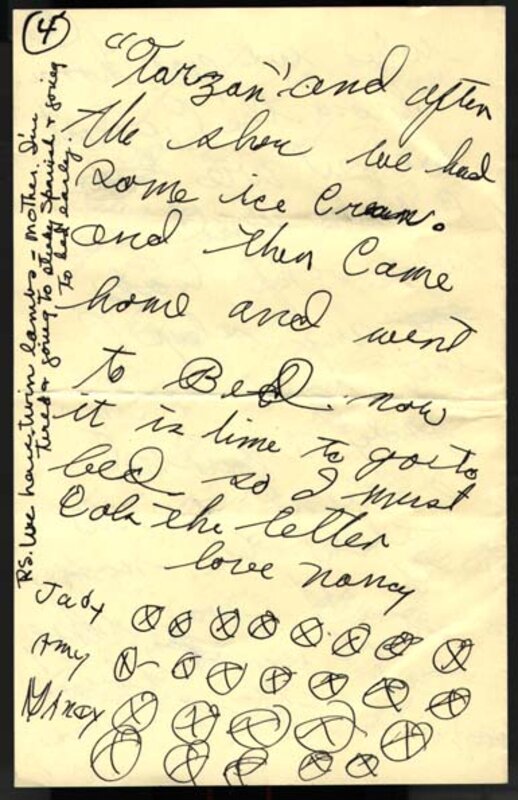 4
"Tarzan" and after
the show we had
some ice Cream.
and then Came
home and went
to Bed. now
it is time to go to
bed. so I must
the letter
love nancy
Amy
Nancy
P.S. We have twin lambs - Mother. I'm
tired & going to study Spanish & going
to bed early.